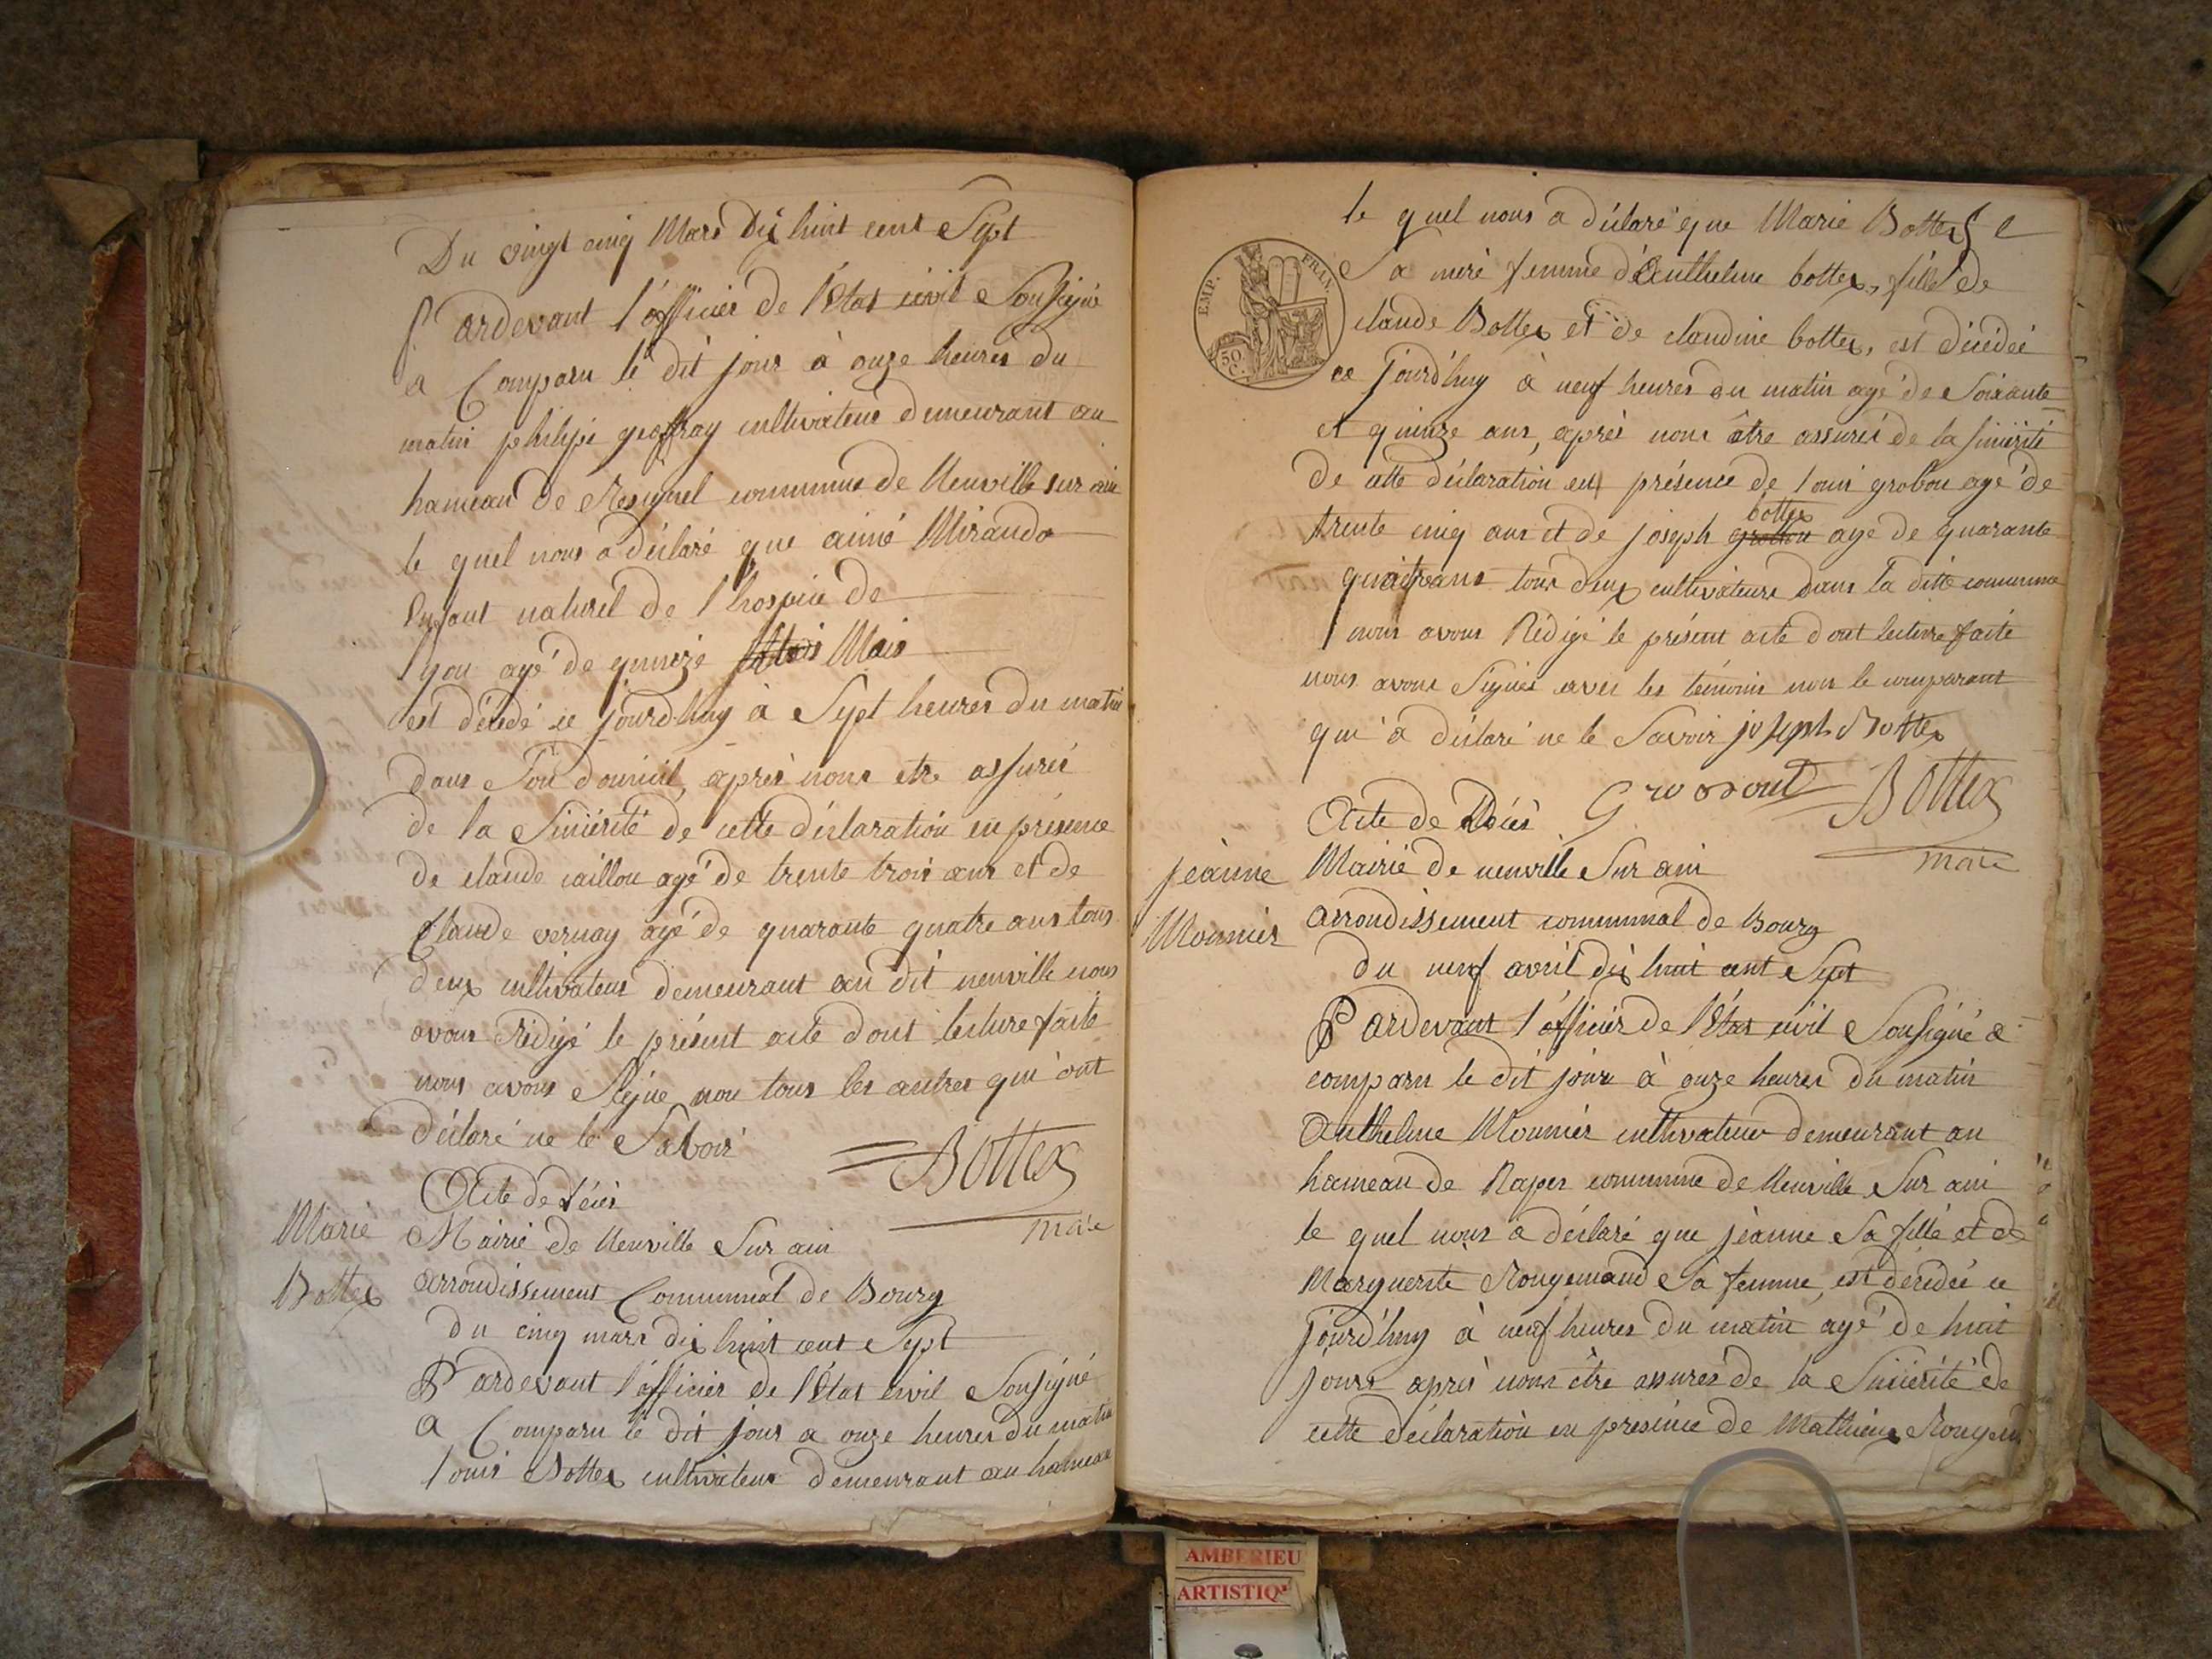 Du vingt cinq Mars Dix huit cent Sept
Pardevant l'officier de l'Etat civil Sousigné
a Comparu le dit jour à onze heures du
matin philipe geoffray cultivateur demeurant au
hameau de Resignel commune de Neuville sur ain
le quel nous a déclaré que aimé Mirando
Enfant naturel de l'hospice de
lyon agé de quinze Mois
est décédé ce jourd'huy à Sept heures du matin
dans Son domicil, après nous etre assurés
de la Sincérité de cette déclaration en présence
de claude caillou agé de trente trois ans et de
Claude vernay agé de quarante quatre ans tous
deux cultivateur demeurant au dit neuville nous
avons Rédigé le présent acte dont lecture faite
nous avons Signe non tous les autres qui ont
déclaré ne le Savoir
Bottex
maire
Acte de décés
Marie
Mairie de Neuville Sur ain
Bottex
arrondissement Communal de Bourg
du cinq mars dix huit cent Sept
Pardevant l'officier de l'Etat civil Sousigné
a Comparu le dit jour a onze heures du matin
louis Bottex cultivateur demeurant au hameau
le quel nous a déclaré que Marie Bottex
EMP. FRAN.
50 C.
Sa mere femme d'Anthelme bottex, fille de
claude Bottex et de claudine bottex, est décédée
ce jourd'huy à neuf heures du matin agé de Soixante
et quinze ans, après nous être assurés de la sincérité
de cette déclaration en présence de louis grobon agé de
bottex
trente cinq ans et de joseph grobon agé de quarante
quatre ans tous deux cultivateurs dans la ditte commune
nous avons Rédigé le présent acte dont lecture faite
nous avons Signés avec les témoins non le comparant
qui a déclaré ne le Savoir joseph Bottex
Bottex
maire
Acte de Décés
jeanne
Mairie de neuville Sur ain
Monnier
arrondissement communal de Bourg
du neuf avril dix huit cent Sept
Pardevant l'officier de l'Etat civil Sousigné a
comparu le dit jour à onze heures du matin
Anthelme Monnier cultivateur demeurant au
hameau de Rapes commune de Neuville Sur ain
le quel nous a déclaré que jeanne Sa fille et de
Marguerite Rougemand Sa femme, est décédée ce
jourd'huy à neuf heures du matin agé de huit
jours après nous être assurés de la Sincérité de
cette déclaration en presence de Mathieux
AMBERIEU
ARTISTIQ